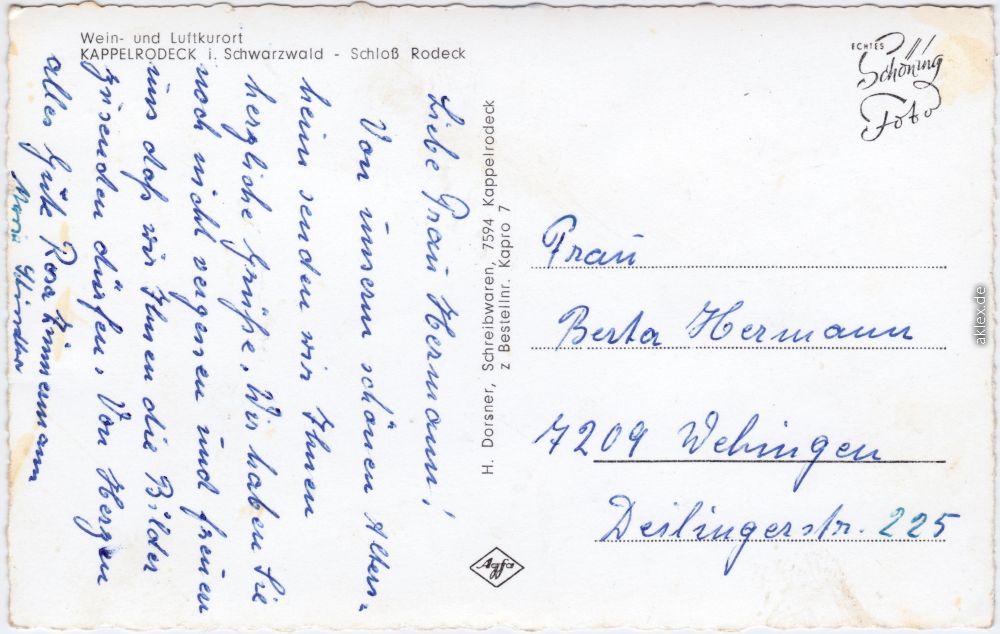 Wein- und Luftkurort
KAPPELRODECK i. Schwarzwald - Schloß Rodeck
Liebe Frau Hermann!
Von unserm schönen Alters-
heim senden wir Ihnen
herzliche Grüße, Wir haben Sie
noch nicht vergessen und freuen
uns daß wir Ihnen die Bilder
zusenden dürfen, Von Herzen
alles Gute Rosa Zimmermann
Maria
H. Dorsner, Schreibwaren, 7594 Kappelrodeck
z Bestellnr. Kapro 7
ECHTES
Schöning
Foto
Frau
Berta Hermann
7209 Wehingen
Deilingerstr. 225
Agfa
aklex.de